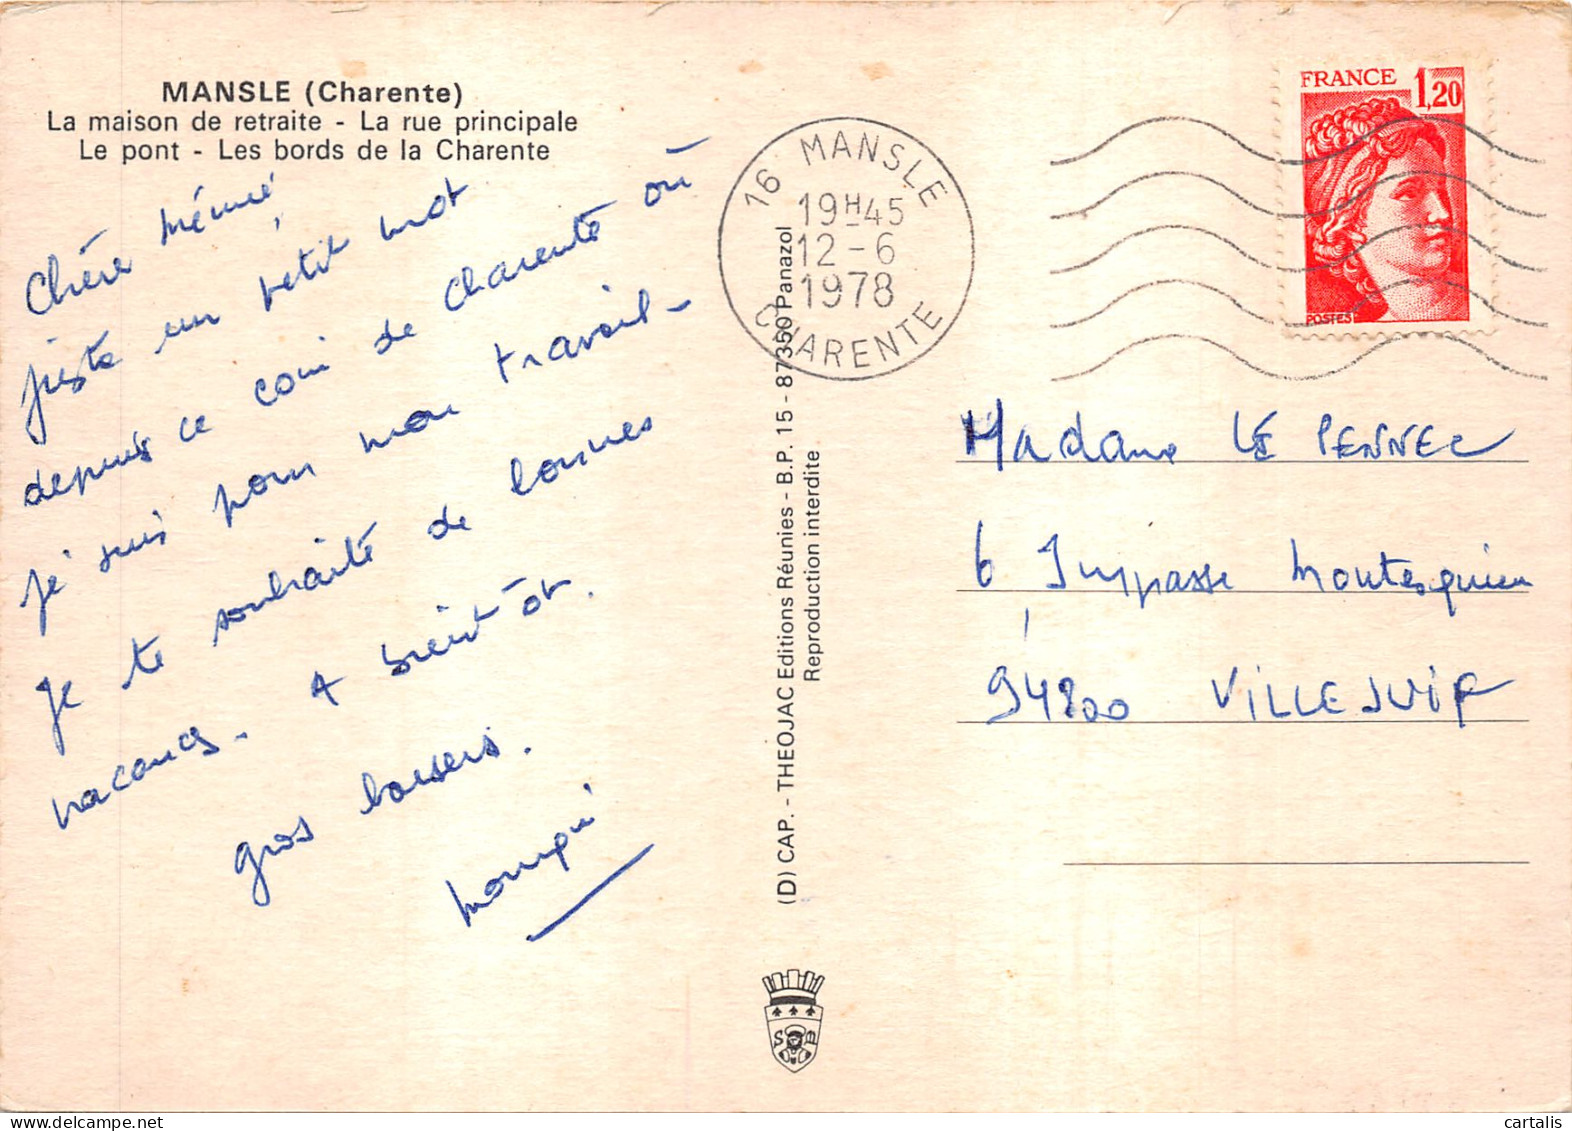 MANSLE (Charente)
La maison de retraite - La rue principale
Le pont - Les bords de la Charente
Chère mémé
juste un petit mot
depuis ce coin de charente où
je suis pour mon travail -
je te souhaite de bonnes
vacances. A bientôt.
gros baisers.
16 MANSLE
19H45
12-6
1978
CHARENTE
FRANCE 1,20
POSTES
(D) CAP. - THEOJAC Editions Réunies - B.P. 15 - 87350 Panazol
Reproduction interdite
Madame LE PENNEC
6 Impasse Montesquieu
94800 VILLEJUIF
S M
cartalis